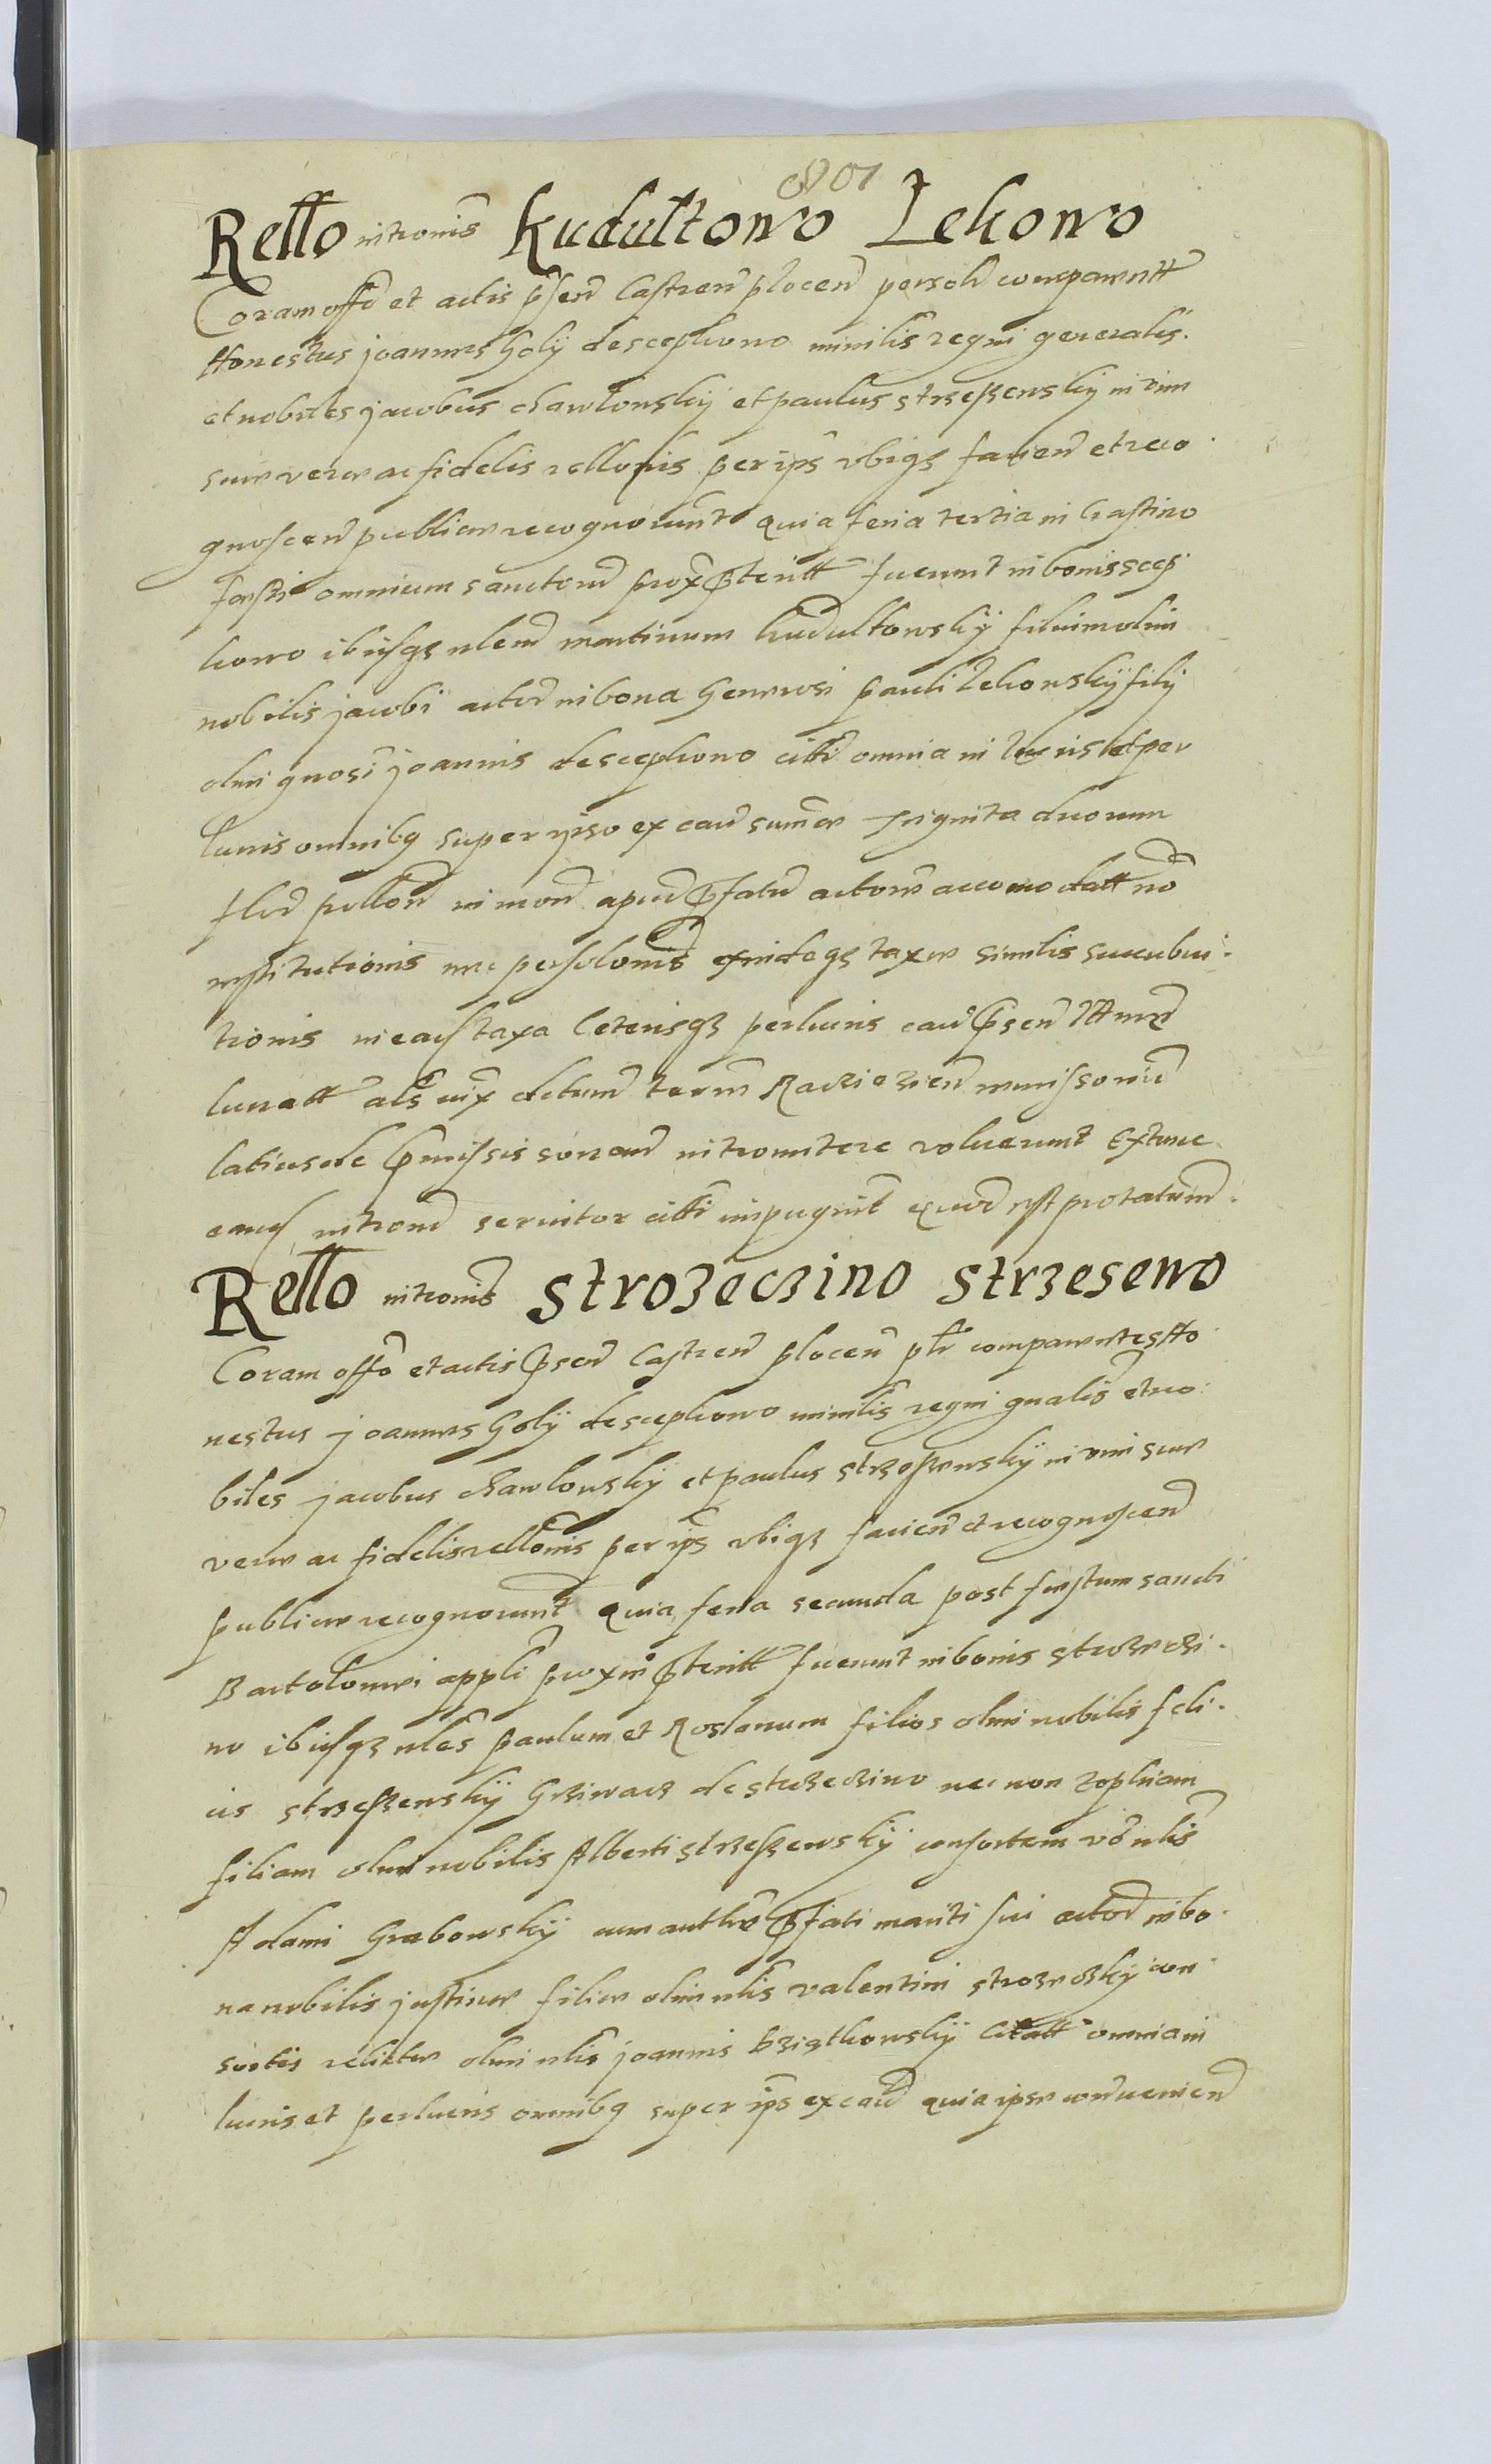 801
Rello intromis Kudultowo Lekowo
Coram offo et actis psen Castren plocen personl comparentt
Honestus joannes Golÿ descepkowo minilis regni generalis.
et nobiles jacobus chawlonskÿ et paulus strzeszewskÿ in vim
suae verae ac fidelis rellonis per ips vbiqz facien et reco
gnoscen publice recognorunt quia feria tertia in Crastino
festi omnium sanctorum prox pteritt fuerunt in bonis scep
kowo ibiqz nlem martinum kudultowskÿ filium olim
nobilis jacobi actor in bona Generosi pauli Lekowskÿ filÿ
olim gnosi joannis de scepkowo citti omnia in lucris et per
lucris omnibq super ipso ex cau summae triginta duorum
flor pollon in mon apud pfatu actorem accomodatt no
restitutionis nec persolonis exindeqz taxae similis succubui.
tionis in easz taxa Ceterisqz perlucris cau psen
lucratt als vix dictum term Raciazien
latius de pmissis sonan intromitere voluerunt Extunc
eausz introm servitor citti impugnit quod est protatum.
Rello intromis Strozeczino Strzesewo
Coram offo et actis psen Castren plocen plr comparentes Ho
nestus joannes Golÿ de scepkowo minilis regni gnalis et no
biles jacobus chawlonskÿ et paulus strzeszewskÿ in vim suae
verae ac fidelis rellonis per ips vbiqz facien et recognoscen
publice recognorunt quia feria secunda post festum sancti
Bartolomei appli proxim pteritt fuerunt in bonis strozeczi.
no ibiqz nles paulum et Roslanum filios olim nobilis feli.
cis strzeszewskÿ Grziwacz de strzeczino nec non zophiam
filiam olim nobilis Alberti strzeszewskÿ consortem vo nlis
Adami Grabowskÿ cum autho pfati mariti sui actor in bo.
na nobilis justinae filiae olim nlis valentini strozeczkÿ con
sortis relictae olim nlis joannis krziatkowskÿ Citatt omnia in
lucris et perlucris omnibq super ips ex cau quia ipse conduenien